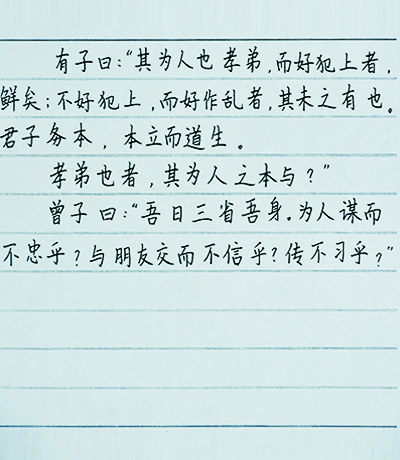 有子曰:“其为人也孝弟,而好犯上者,
鲜矣;不好犯上,而好作乱者,其未之有也。
君子务本,本立而道生。
孝弟也者,其为人之本与?”
曾子曰:“吾日三省吾身.为人谋而
不忠乎?与朋友交而不信乎?传不习乎?”